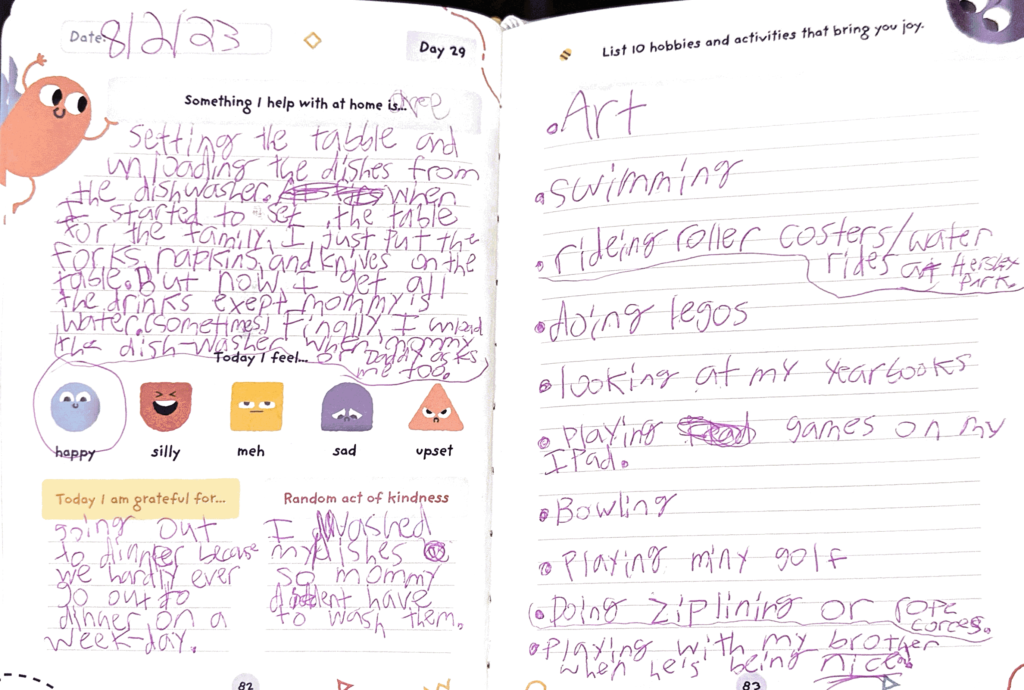 Date: 8/2/23
Day 29
Something I help with at home is... are
setting the tabble and
unloading the dishes from
the dishwasher. when
I started to set the table
for the family, I just put the
forks, napkins, and knives on the
table. But now, I get all
the drinks exept mommy's
water. (sometimes.) Finally, I unload
the dish-washer when mommy
or Daddy asks
me too.
Today I feel...
happy
silly
meh
sad
upset
Today I am grateful for...
going out
to dinner because
we hardly ever
go out to
dinner on a
week-day.
Random act of kindness
I washed
my dishes
so mommy
dident have
to wash them.
82
List 10 hobbies and activities that bring you joy.
Art
swimming
rideing roller costers/water
rides at Hershey
Park.
doing legos
looking at my yearbooks
Playing games on my
IPad.
Bowling
Playing miny golf
Doing ziplining or rope
corces.
Playing with my brother
when he's being nice.
83